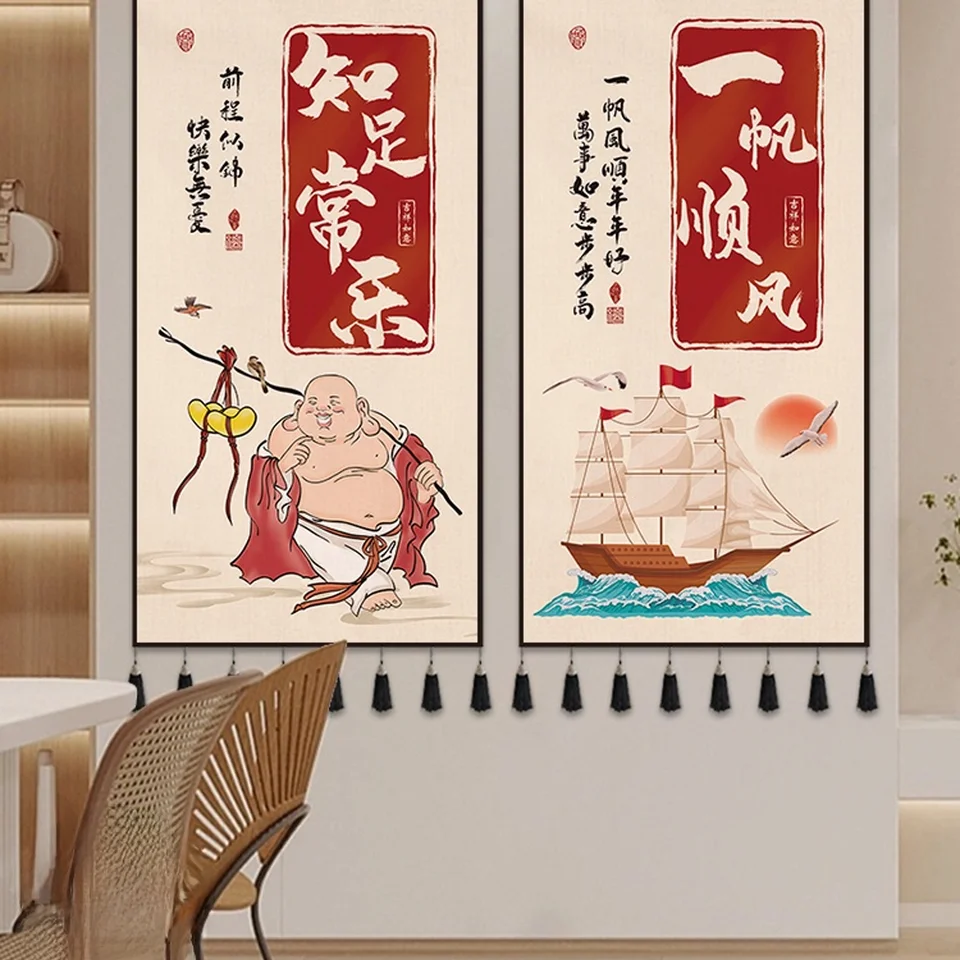 知足常乐
吉祥如意
前程似锦
快樂無憂
一帆顺风
吉祥如意
一帆風順年年好
萬事如意步步高